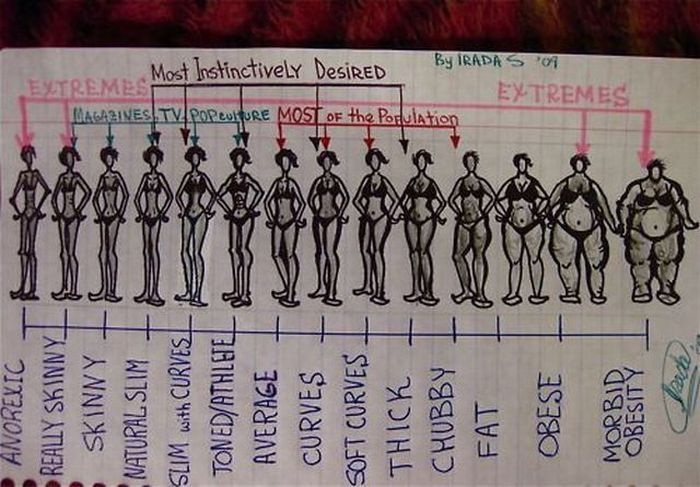 By IRADA S '09
Most Instinctively Desired
EXTREMES
EXTREMES
MAGAZINES, TV, POP culture
MOST of the Population
ANOREXIC
REALLY SKINNY
SKINNY
NATURAL SLIM
SLIM with CURVES
TONED/ATHLETE
AVERAGE
CURVES
SOFT CURVES
THICK
CHUBBY
FAT
OBESE
MORBID
OBESITY